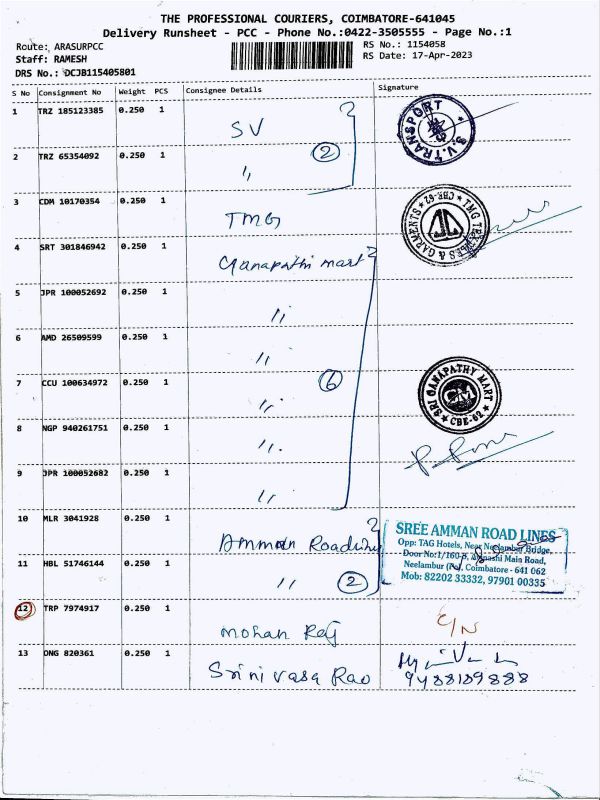 THE PROFESSIONAL COURIERS, COIMBATORE-641045
Delivery Runsheet - PCC - Phone No.:0422-3505555 - Page No.:1
Route: ARASURPCC
RS No.: 1154058
Staff: RAMESH
RS Date: 17-Apr-2023
DRS No.: DCJB115405801
S No Consignment No Weight PCS Consignee Details Signature
1 TRZ 185123385 0.250 1 SV
S.V.TRANSPORT
2 TRZ 65354092 0.250 1 ,, 2
3 CDM 10170354 0.250 1 TMG
TMG & GARMENTS CBE-62
4 SRT 301846942 0.250 1 Ganapathi mart
5 JPR 100052692 0.250 1 ,,
6 AMD 26509599 0.250 1 ,,
7 CCU 100634972 0.250 1 ,, 6
SRI GANAPATHY MART CBE-62
8 NGP 940261751 0.250 1 ,,
9 JPR 100052682 0.250 1 ,,
10 MLR 3041928 0.250 1 Amman
SREE AMMAN ROAD LINES
Opp: TAG Hotels, Near Neelambur Bridge,
Door No:1/160- Avinashi Main Road,
Neelambur Coimbatore - 641 062
Mob: 82202 33332, 97901 00335
11 HBL 51746144 0.250 1 ,, 2
12 TRP 7974917 0.250 1 mohan Raj C/N
13 ONG 820361 0.250 1 Srinivasa Rao
9488189888